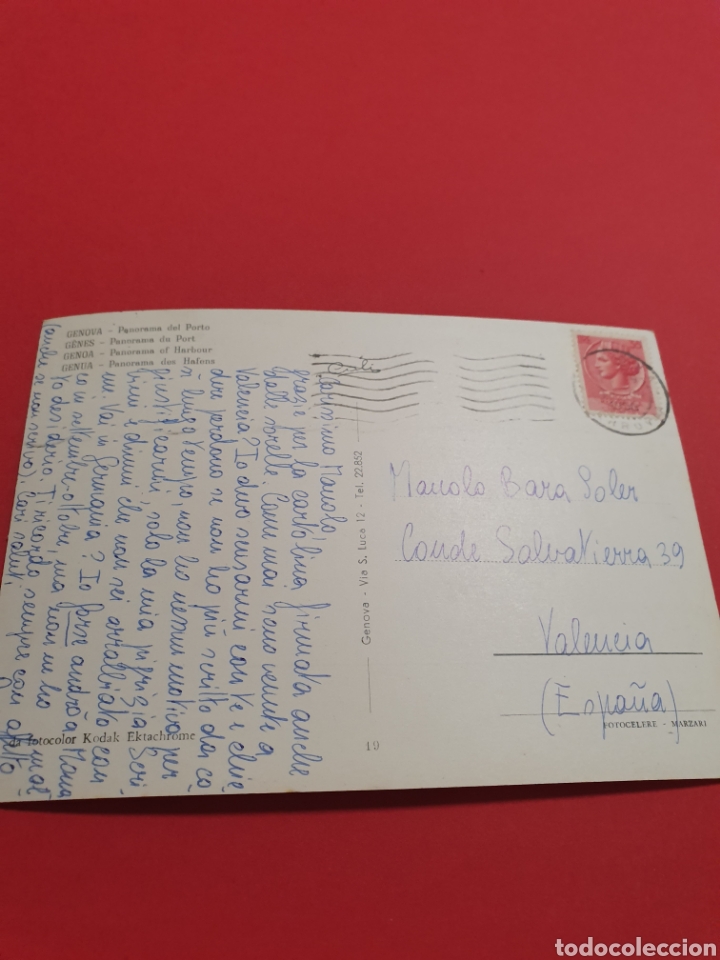 GENOVA - Panorama del Porto
GÊNES - Panorama du Port
GENOA - Panorama of Harbour
GENUA - Panorama des Hafens
Carissimo Manolo,
grazie per la cartolina firmata anche
dalle sorelle. Come mai sono venute a
Valencia? Io devo scusarmi con te e chie
dere perdono se non ho più scritto da co
sì lungo tempo, non ho nessun motivo per
giustificarmi, solo la mia pigrizia. Scri
vimi e dimmi che non sei arrabbiato con
me. Vai in Germania? Io forse andrò a
co in settembre-ottobre, ma non ne ho mol
to desiderio. Ti ricordo sempre con affetto
(anche se non scrivo). Cari saluti.
da fotocolor Kodak Ektachrome
Genova - Via S. Luca 12 - Tel. 22.852
19
Manolo Bara Soler
Conde Salvatierra 39
Valencia
(España)
FOTOCELERE - MARZARI
todocoleccion